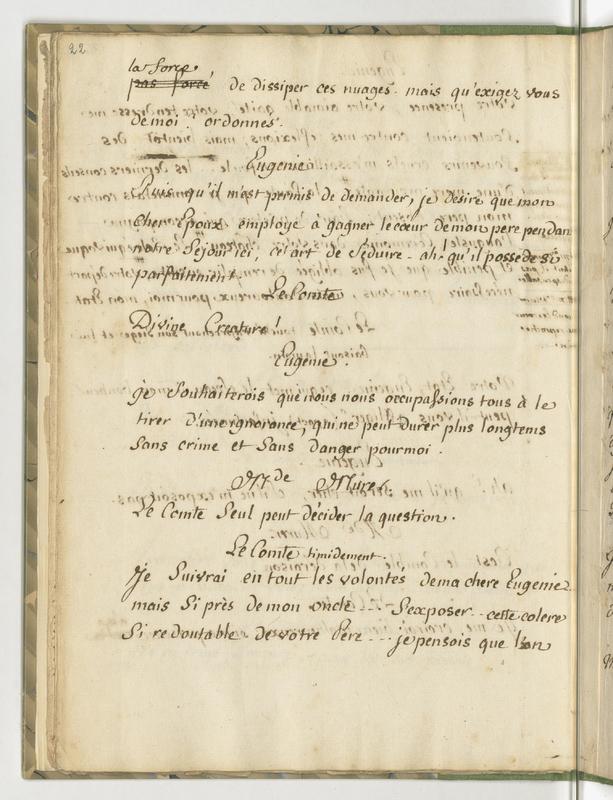 22
la force
pas forcé de dissiper ces nuages. mais qu'exigez vous
de moi ? ordonnes.
Eugenie
Puis qu'il m'est permis de demander, je désire que mon
cher Epoux employe à gagner le cœur de mon pere pendan
notre Sejour ici, cet art de Seduire - ah ! qu'il possede si
parfaitement
Le Comte
Divine Creature !
Eugenie.
je souhaiterois que nous nous occupassions tous à le
tirer d'une ignorance, qui ne peut durer plus longtems
Sans crime et Sans danger pour moi.
M.de Murer
Le Comte Seul peut décider la question.
Le Comte timidement.
Je Suivrai en tout les volontés de ma chere Eugenie
mais Si près de mon oncle --- S'exposer -- cette colere
Si redoutable de vôtre Père --- je pensois que l'on